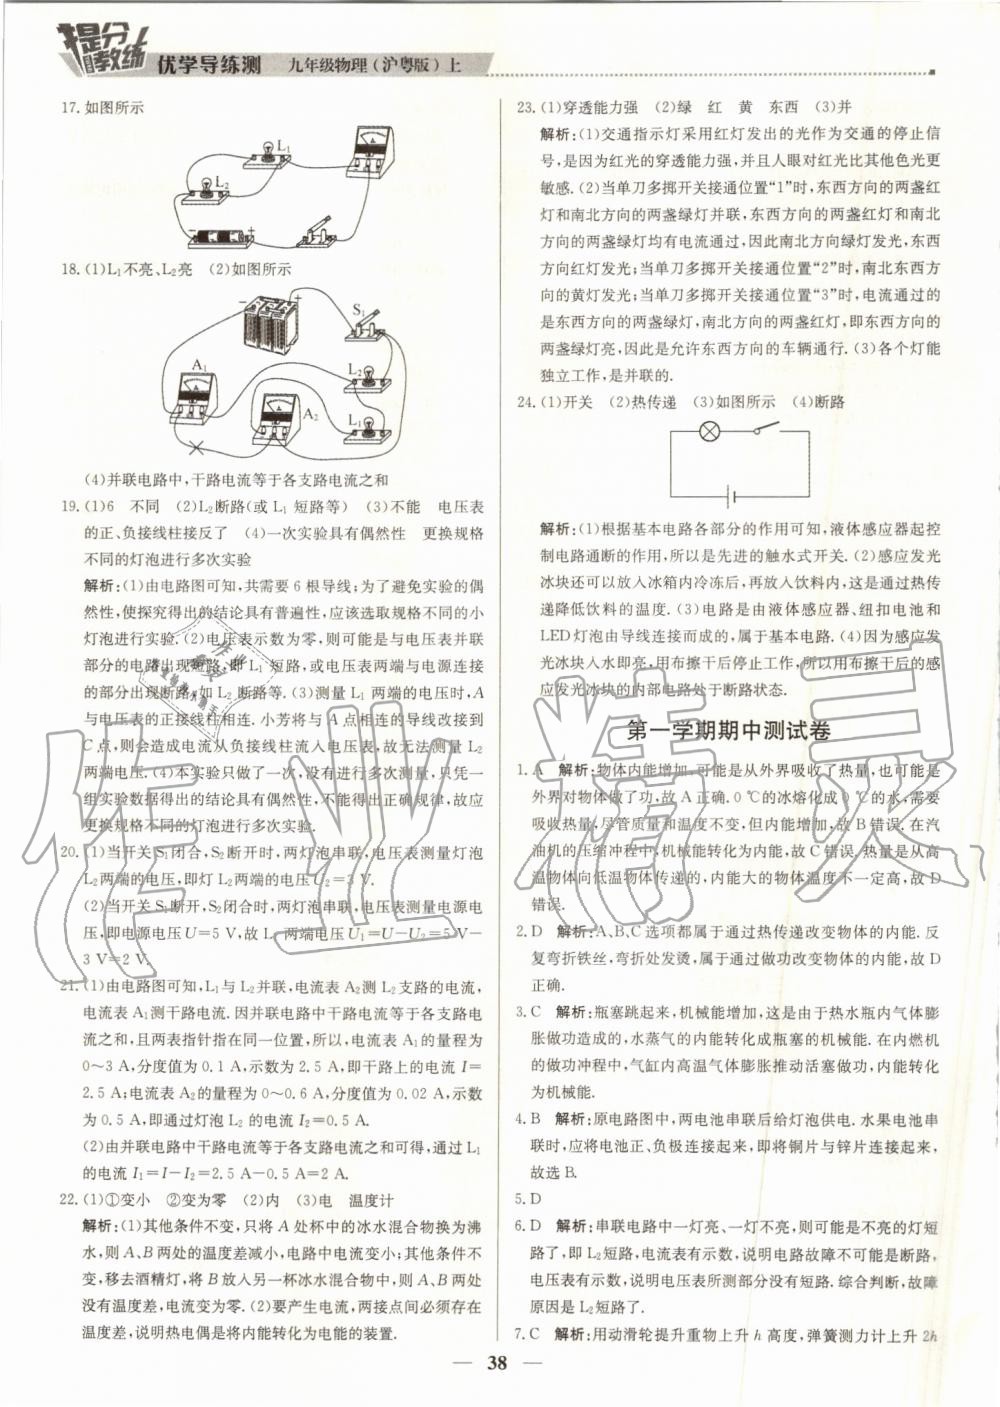 提分教练
优学导练测 九年级物理(沪粤版)上
17. 如图所示
L₁
L₂
18. (1)L₁不亮、L₂亮 (2)如图所示
S₁
A₁
L₂
A₂
L₁
(4)并联电路中,干路电流等于各支路电流之和
19. (1)6 不同 (2)L₂断路(或 L₁ 短路等) (3)不能 电压表
的正、负接线柱接反了 (4)一次实验具有偶然性 更换规格
不同的灯泡进行多次实验
解析:(1)由电路图可知,共需要 6 根导线;为了避免实验的偶
然性,使探究得出的结论具有普遍性,应该选取规格不同的小
灯泡进行实验.(2)电压表示数为零,则可能是与电压表并联
部分的电路出现短路,即 L₁ 短路,或电压表两端与电源连接
的部分出现断路,如 L₂ 断路等.(3)测量 L₁ 的电压时,A
与电压表的正接线柱相连.小芳将与 A 点相连的导线改接到
C 点,则会造成电流从负接线柱流入电压表,故无法测量 L₂
两端电压.(4)本实验只做了一次,没有进行多次测量,只凭一
组实验数据得出的结论具有偶然性,不能得出正确规律,故应
更换规格不同的灯泡进行多次实验.
20. (1)当开关S₁闭合,S₂断开时,两灯泡串联,电压表测量灯泡
L₂两端的电压,即灯 L₂两端的电压U₂=3 V.
(2)当开关 S₁断开,S₂闭合时,两灯泡串联,电压表测量电源电
压,即电源电压U=5 V,故 L₁ 两端电压 U₁=U-U₂=5 V-
3 V=2 V.
21. (1)由电路图可知,L₁与 L₂并联,电流表 A₂测 L₂支路的电流,
电流表 A₁测干路电流.因并联电路中干路电流等于各支路电
流之和,且两表指针指在同一位置,所以,电流表 A₁的量程为
0～3 A,分度值为 0.1 A,示数为 2.5 A,即干路上的电流 I=
2.5 A;电流表 A₂的量程为 0～0.6 A,分度值为 0.02 A,示数
为 0.5 A,即通过灯泡 L₂ 的电流 I₂=0.5 A.
(2)由并联电路中干路电流等于各支路电流之和可得,通过 L₁
的电流 I₁=I-I₂=2.5 A-0.5 A=2 A.
22. (1)①变小 ②变为零 (2)内 (3)电 温度计
解析:(1)其他条件不变,只将 A 处杯中的冰水混合物换为沸
水,则 A、B 两处的温度差减小,电路中电流变小;其他条件不
变,移去酒精灯,将 B 放入另一杯冰水混合物中,则 A、B 两处
没有温度差,电流变为零.(2)要产生电流,两接点间必须存在
温度差,说明热电偶是将内能转化为电能的装置.
23. (1)穿透能力强 (2)绿 红 黄 东西 (3)并
解析:(1)交通指示灯采用红灯发出的光作为交通的停止信
号,是因为红光的穿透能力强,并且人眼对红光比其他色光更
敏感.(2)当单刀多掷开关接通位置“1”时,东西方向的两盏红
灯和南北方向的两盏绿灯并联,东西方向的两盏红灯和南北
方向的两盏绿灯均有电流通过,因此南北方向绿灯发光,东西
方向红灯发光;当单刀多掷开关接通位置“2”时,南北方向
的黄灯发光;当单刀多掷开关接通位置“3”时,电流通过的
是东西方向的两盏绿灯,南北方向的两盏红灯,即东西方向的
两盏绿灯亮,因此是允许东西方向的车辆通行.(3)各个灯能
独立工作,是并联的.
24. (1)开关 (2)热传递 (3)如图所示 (4)断路
解析:(1)根据基本电路各部分的作用可知,液体感应器起控
制电路通断的作用,所以是先进的触水式开关.(2)感应发光
冰块还可以放入冰箱内冷冻后,再放入饮料内,这是通过热传
递降低饮料的温度.(3)电路是由液体感应器、纽扣电池和
LED灯泡由导线连接而成的,属于基本电路.(4)因为感应发
光冰块入水即亮,用布擦干后停止工作,所以用布擦干后的感
应发光冰块的内部电路处于断路状态.
第一学期期中测试卷
1. A 解析:物体内能增加,可能是从外界吸收了热量,也可能是
外界对物体做了功,故 A 正确.0 ℃的冰熔化成 0 ℃的水,需要
吸收热量,尽管质量和温度不变,但内能增加,故 B 错误.在汽
油机的压缩冲程中,机械能转化为内能,故 C 错误.热量是从高
温物体向低温物体传递的,内能大的物体温度不一定高,故 D
错误.
2. D 解析:A、B、C 选项都属于通过热传递改变物体的内能.反
复弯折铁丝,弯折处发烫,属于通过做功改变物体的内能,故 D
正确.
3. C 解析:瓶塞跳起来,机械能增加,这是由于热水瓶内气体膨
胀做功造成的,水蒸气的内能转化成瓶塞的机械能.在内燃机
的做功冲程中,气缸内高温气体膨胀推动活塞做功,内能转化
为机械能.
4. B 解析:原电路图中,两电池串联后给灯泡供电.水果电池串
联时,应将电池正、负极连接起来,即将铜片与锌片连接起来,
故选 B.
5. D
6. D 解析:串联电路中一灯亮、一灯不亮,则可能是不亮的灯短
路了,即 L₂短路,电流表有示数,说明电路故障不可能是断路,
电压表有示数,说明电压表所测部分没有短路.综合判断,故障
原因是 L₂短路了.
7. C 解析:用动滑轮提升重物上升 h 高度,弹簧测力计上升 2h
38
作业精灵